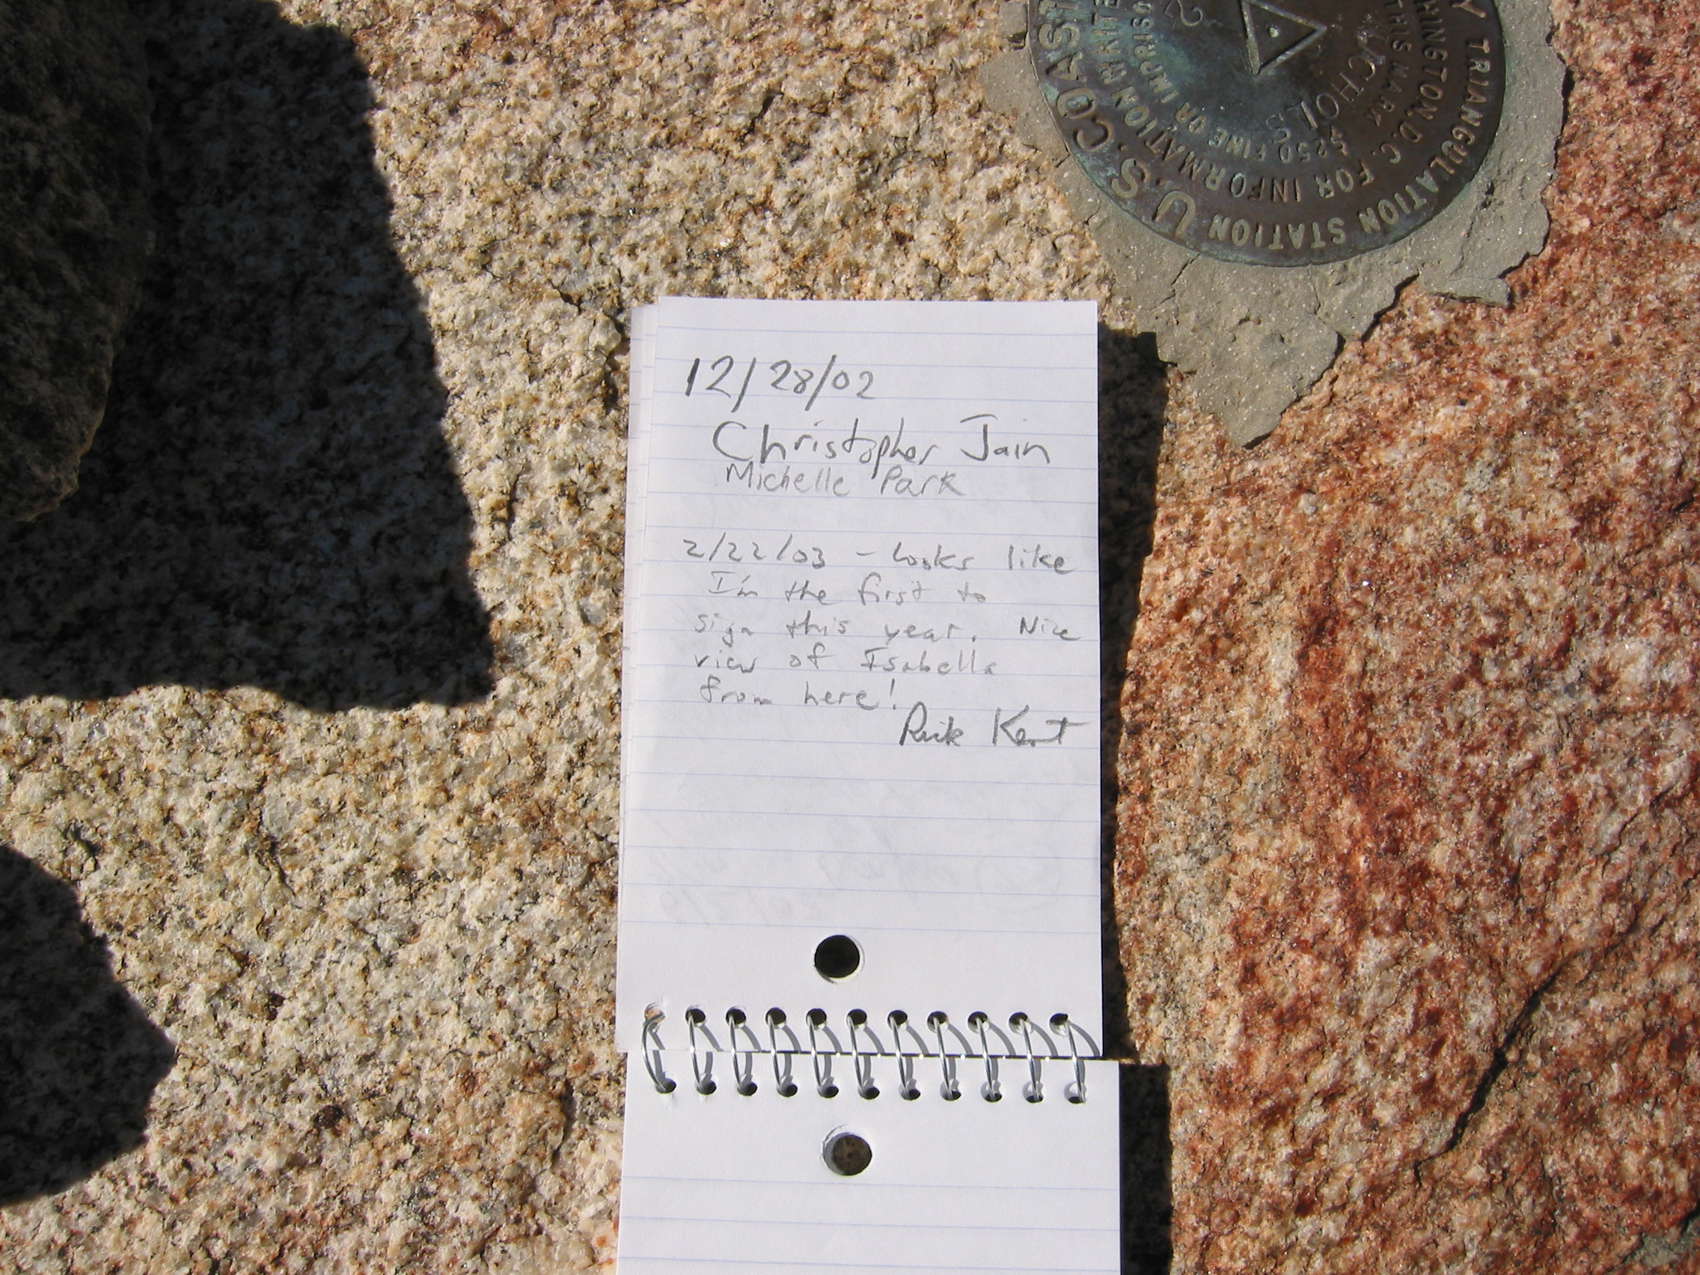 U.S. COAST
Y TRIANGULATION STATION
HINGTON, D.C. FOR INFORMATION WRITE
THIS MARK
$250 FINE OR IMPRISO
NICHOLS
12/28/02
Christopher Jain
Michelle Park
2/22/03 - Looks like
I'm the first to
sign this year. Nice
view of Isabella
from here!
Rick Kent